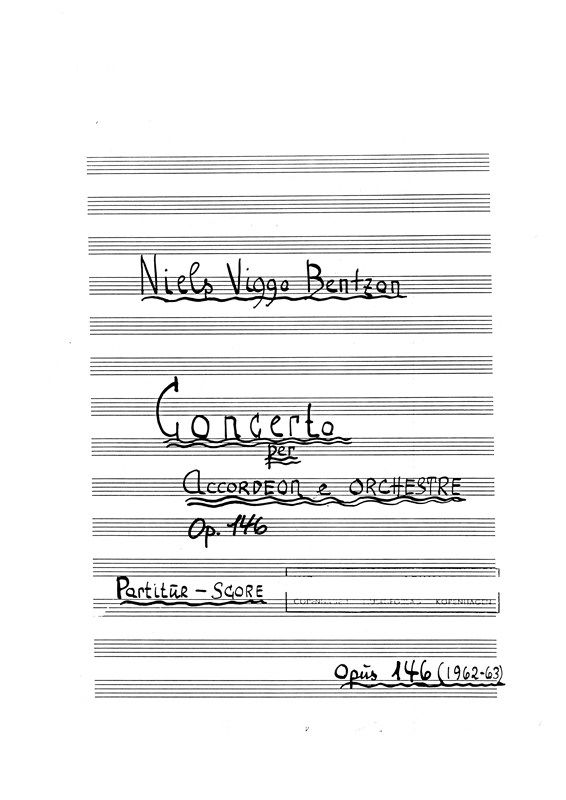 Niels Viggo Bentzon
Concerto
per
ACCORDEON e ORCHESTRE
Op. 146
Partitür - SCORE
KOPENHAGEN
Opús 146 (1962-63)